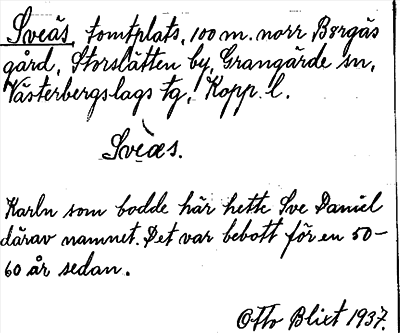 Sveås, tomtplats, 100 m. norr Bergås
gård, Storslätten by, Grangärde sn,
Västerbergslags tg, Kopp. l.
Svèæs.
Karln som bodde här hette Sve Daniel
därav namnet. Det var bebott för en 50-
60 år sedan.
Otto Blixt 1937.